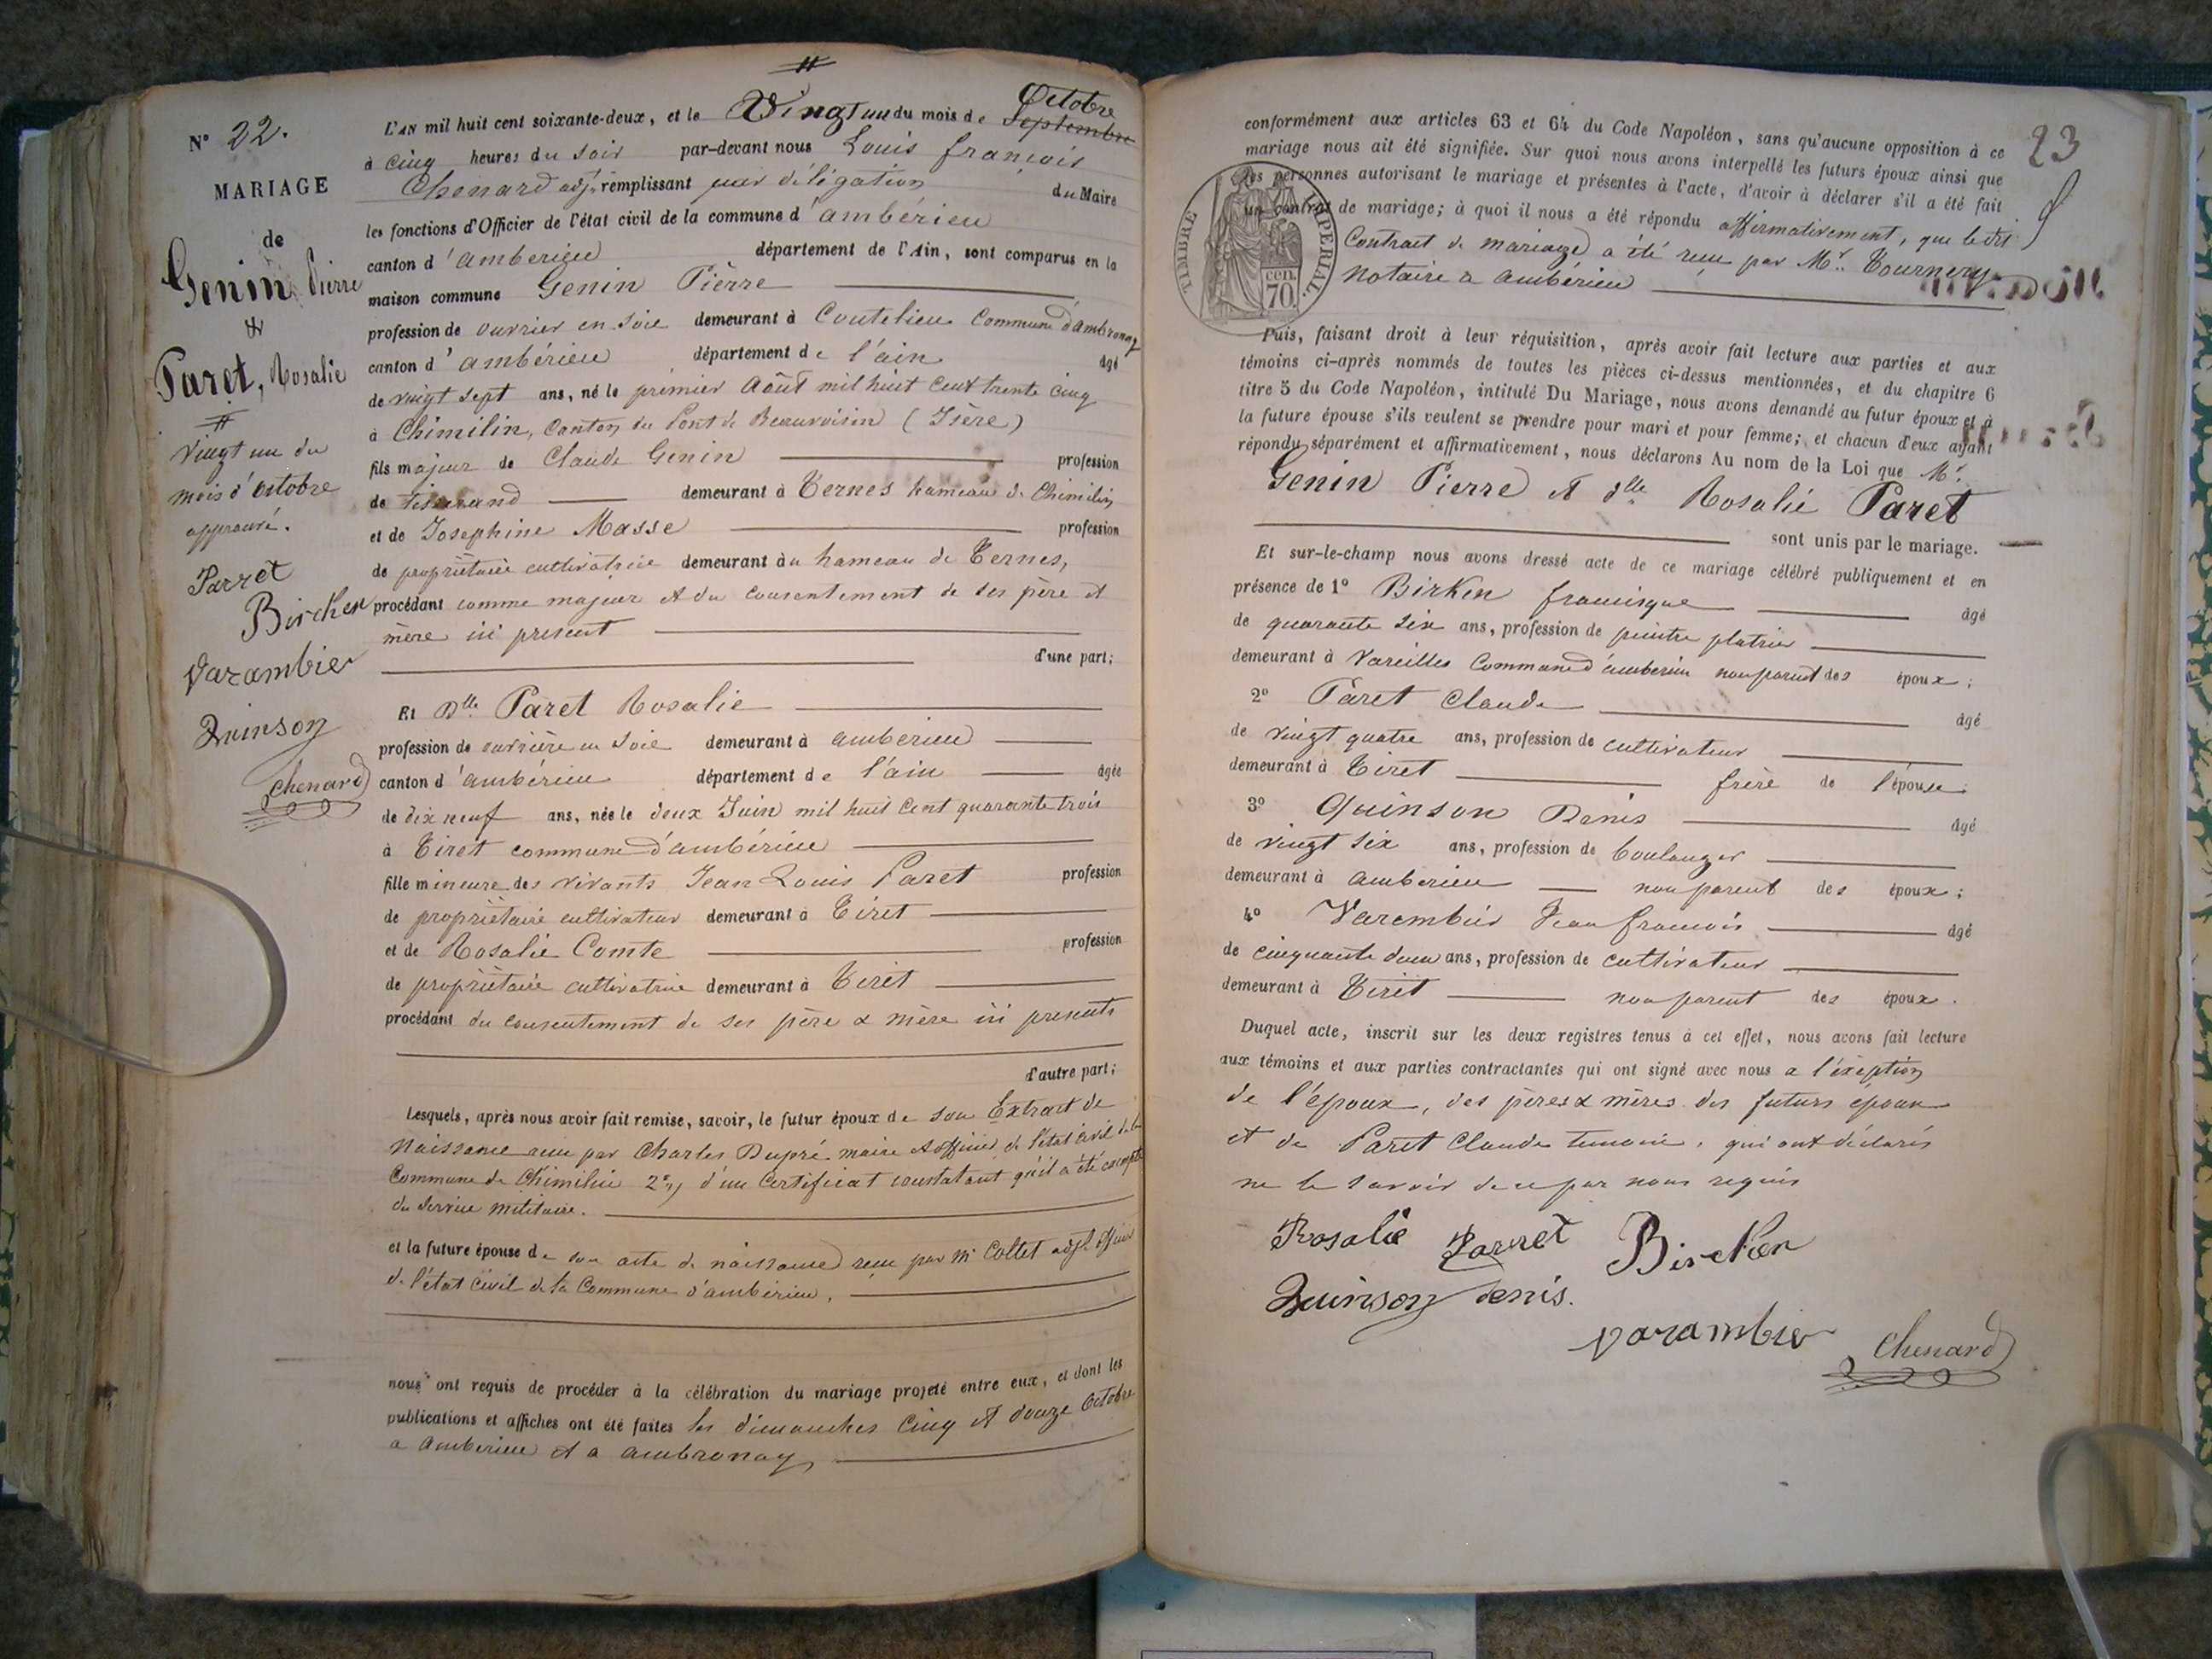 N° 22.
MARIAGE
de
Genin Pierre
&
Paret, Rosalie
vingt un du
mois d'octobre
approuvé.
Parret
Bircken
Varambier
Quinson
Chenard
L'AN mil huit cent soixante-deux, et le Vingt un du mois de Septembre Octobre
à cinq heures du soir par-devant nous Louis françois
Chenard adj. remplissant par déligation du Maire
les fonctions d'Officier de l'état civil de la commune d'ambérieu
canton d'amberieu département de l'Ain, sont comparus en la
maison commune Genin Pierre
profession de ouvrier en soie demeurant à Coutelieu Commune d'ambronay
canton d'ambérieu département de l'ain âgé
de vingt sept ans, né le prémier Août mil huit cent trente cinq
à Chimilin, Canton du Pont de Beauvoisin (Isère)
fils majeur de Claude Genin profession
de tisserand demeurant à Ternes hameau de Chimilin
et de Josephine Masse profession
de propriétaire cultivatrice demeurant au hameau de Ternes,
procédant comme majeur et du consentement de ses père et
mère ici présent
d'une part;
Et Dlle Paret Rosalie
profession de ouvrière en soie demeurant à amberieu
canton d'ambérieu département de l'ain âgée
de dix neuf ans, née le deux Juin mil huit cent quarante trois
à Tiret commune d'ambérieu
fille mineure des vivants Jean Louis Paret profession
de propriétaire cultivateur demeurant à Tiret
et de Rosalie Comte profession
de propriétaire cultivatrice demeurant à Tiret
procédant du consentement de ses père & mère ici presents
d'autre part;
Lesquels, après nous avoir fait remise, savoir, le futur époux de son Extrait de
Naissance reçu par Charles Dupré maire & officier de l'état civil de la
Commune de Chimilin 2° d'un Certificat constatant qu'il a été exempté
du service militaire.
et la future épouse de son acte de naissance reçu par Mr Collet adjt officier
de l'état civil de la Commune d'ambérieu.
nous ont requis de procéder à la célébration du mariage projeté entre eux, et dont les
publications et affiches ont été faites les dimanches Cinq et douze Octobre
a amberieu et a ambronay
23
conformément aux articles 63 et 64 du Code Napoléon, sans qu'aucune opposition à ce
mariage nous ait été signifiée. Sur quoi nous avons interpellé les futurs époux ainsi que
les personnes autorisant le mariage et présentes à l'acte, d'avoir à déclarer s'il a été fait
un contrat de mariage; à quoi il nous a été répondu affirmativement, que ledit
Contrat de mariage a été reçu par Mr. Tournery
notaire a ambérieu
TIMBRE IMPERIAL.
70 cen.
Puis, faisant droit à leur réquisition, après avoir fait lecture aux parties et aux
témoins ci-après nommés de toutes les pièces ci-dessus mentionnées, et du chapitre 6
titre 5 du Code Napoléon, intitulé Du Mariage, nous avons demandé au futur époux et à
la future épouse s'ils veulent se prendre pour mari et pour femme; et chacun d'eux ayant
répondu séparément et affirmativement, nous déclarons Au nom de la Loi que Mr.
Genin Pierre et dlle Rosalie Paret
sont unis par le mariage.
Et sur-le-champ nous avons dressé acte de ce mariage célébré publiquement et en
présence de 1° Birken francisque âgé
de quarante six ans, profession de peintre platrier
demeurant à Vareilles Commune d'amberieu non parent des époux;
2° Paret Claude âgé
de vingt quatre ans, profession de cultivateur
demeurant à Tiret frère de l'épouse;
3° Quinson Denis âgé
de vingt six ans, profession de boulanger
demeurant à amberieu non parent des époux;
4° Varembier Jean françois âgé
de cinquante deux ans, profession de cultivateur
demeurant à Tiret non parent des époux.
Duquel acte, inscrit sur les deux registres tenus à cet effet, nous avons fait lecture
aux témoins et aux parties contractantes qui ont signé avec nous a l'éxéption
de l'époux, des pères & mères des futurs époux
et de Paret Claude temoin, qui ont déclarés
ne le savoir de ce par nous requis
Rosalie Parret Bircken
Quinson denis.
varambier Chenard